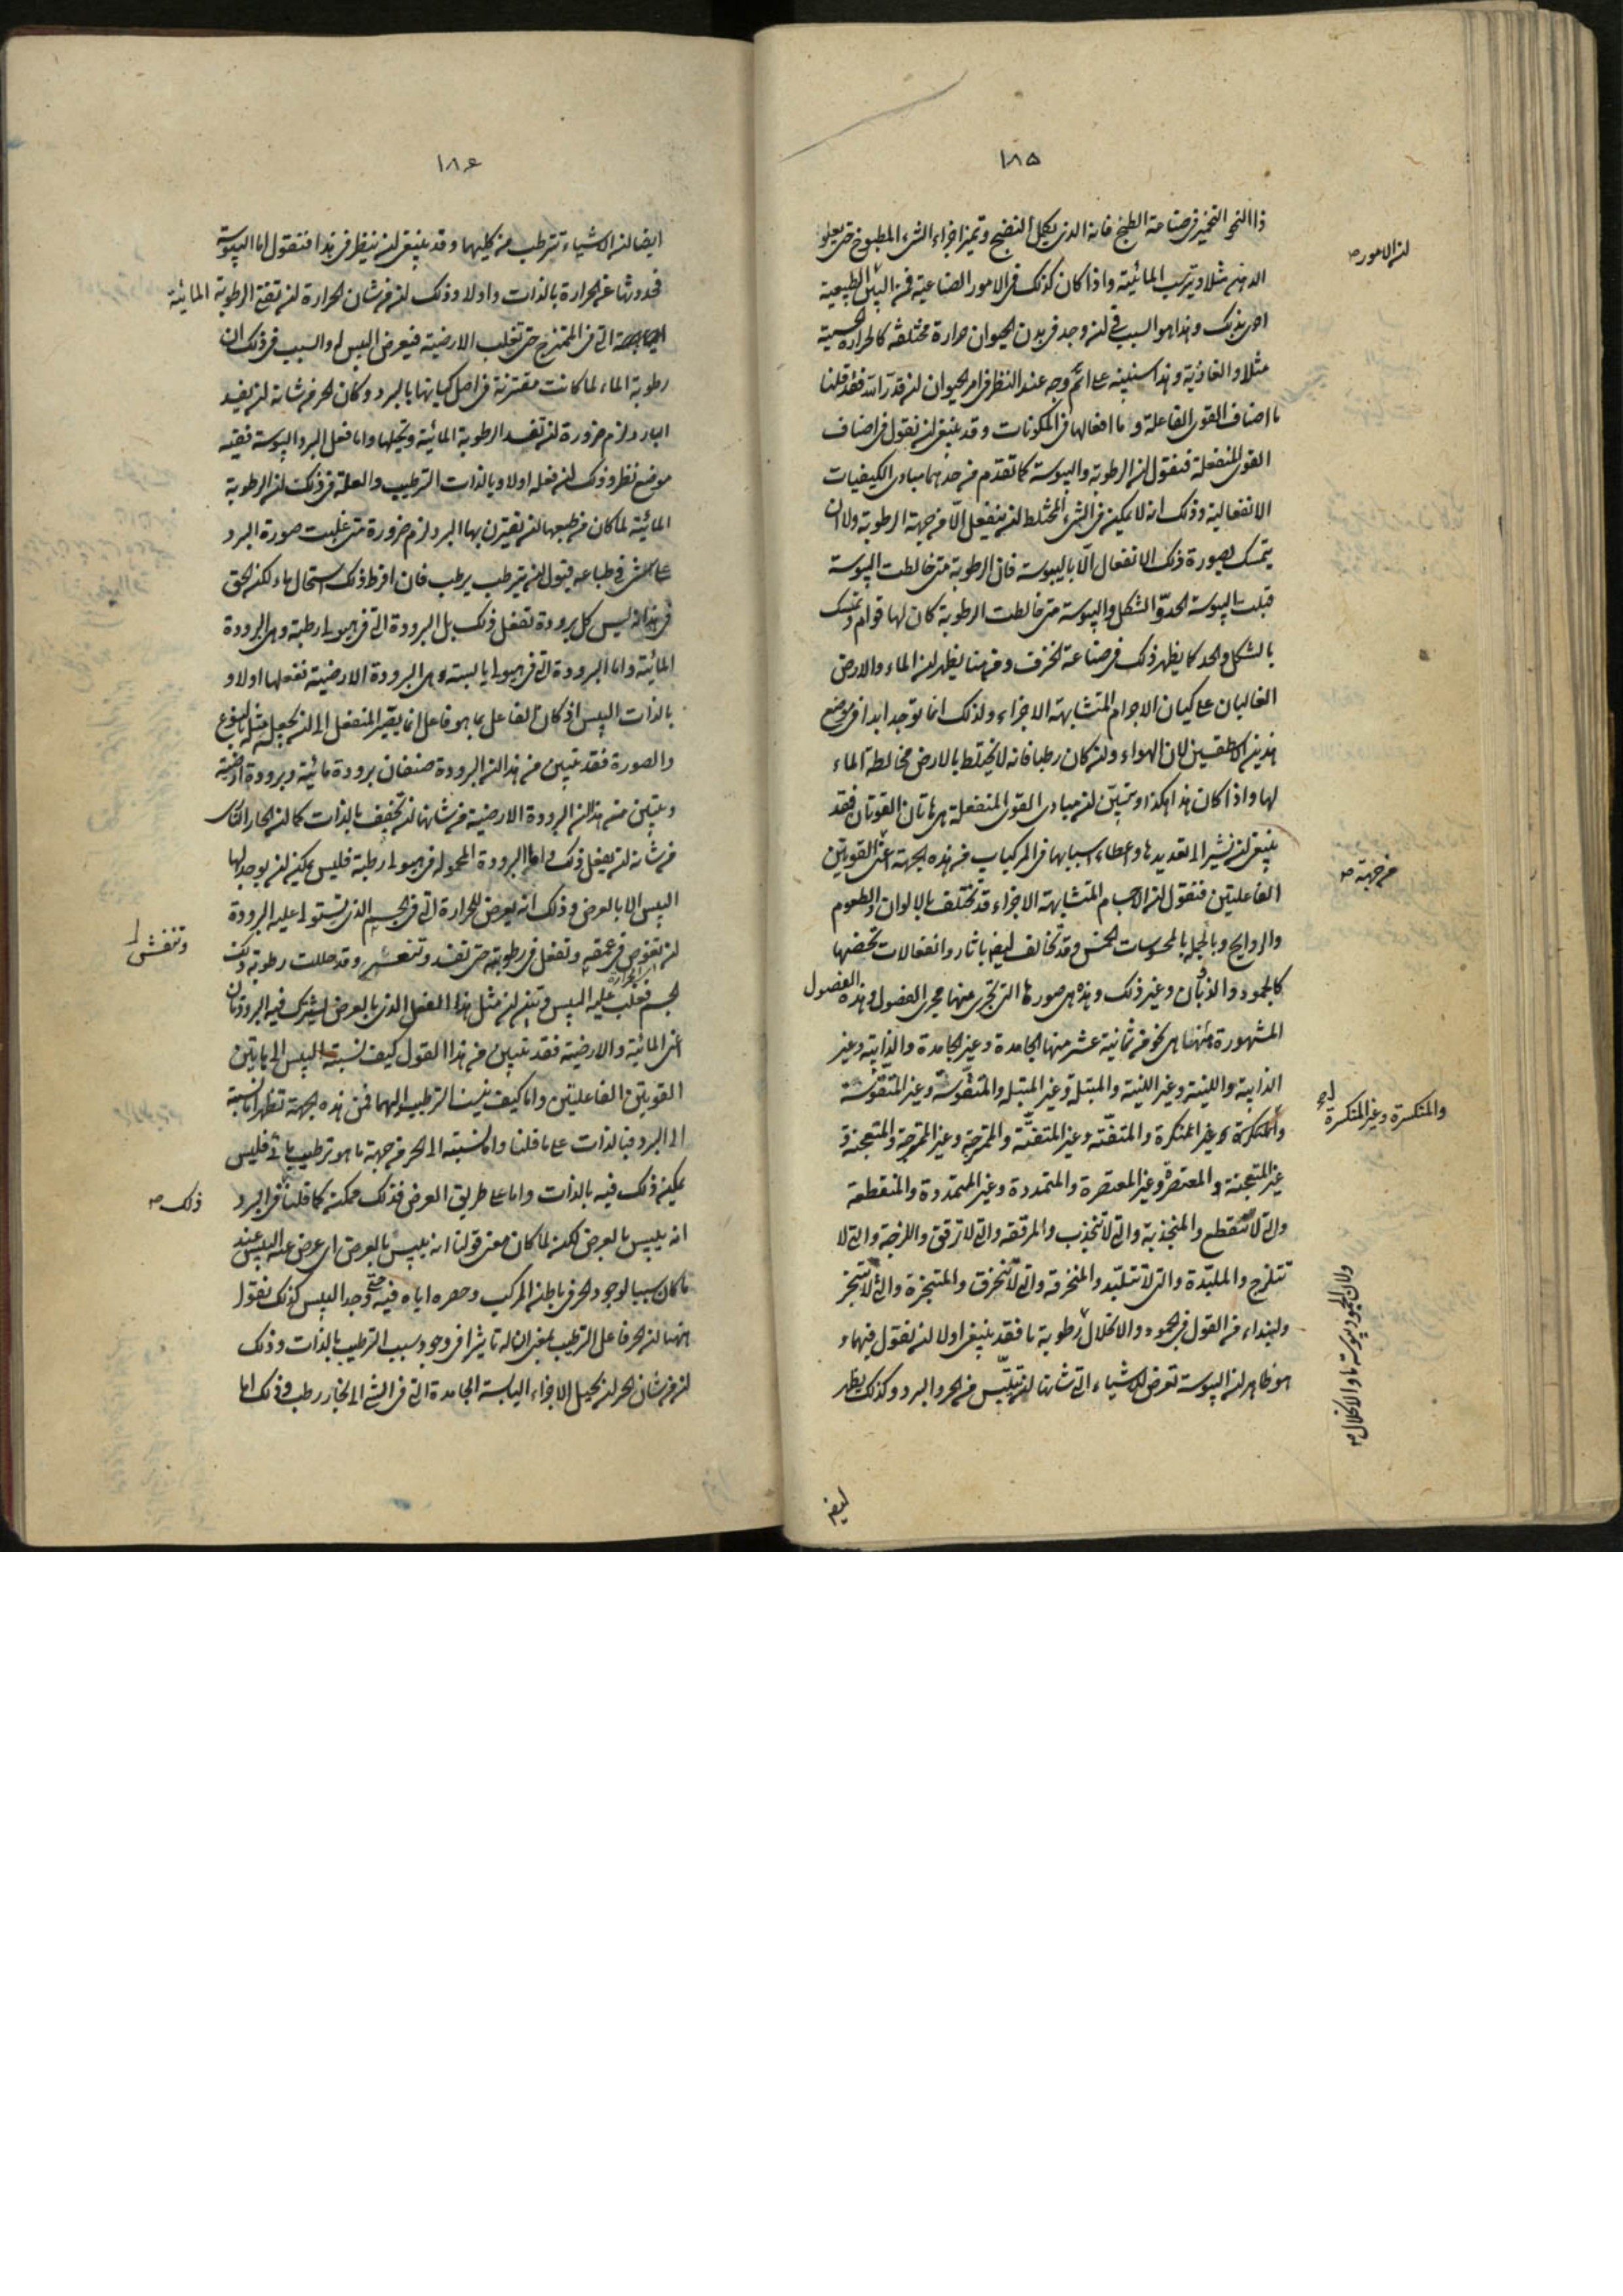 ١٨٥
ذا النحو التخيير في صناعة الطبخ فانه الذي يكمل النضج وتميز اجزاء الشيء المطبوخ حتى يعلو
الدهن مثلا ويرسب المائية واذا كان كذلك في الامور الصناعية فمن البيّن ان الطبيعية
احرى بذلك وهذا هو السبب في ان وجد في بدن الحيوان حرارة مختلفة كالحرارة الحسية
مثلا والغاذية وهذا سنبينه على اتمّ وجه عند النظر في امر الحيوان ان قدر الله فقد قلنا
ما اصناف القوى الفاعلة وما افعالها في المكونات وقد ينبغي ان نقول في اصناف
القوى المنفعلة فنقول ان الرطوبة واليبوسة كما تقدم من حدهما مبادي الكيفيات
الانفعالية وذلك انه لا يمكن في الشيء المختلط ان ينفعل الّا من جهة الرطوبة ولا ان
يتمسك بصورة ذلك الانفعال الّا باليبوسة فان الرطوبة متى خالطت اليبوسة
قبلت اليبوسة الحدّ والشكل واليبوسة متى خالطت الرطوبة كان لها قوام وتمسك
بالشكل والحد كما يظهر ذلك في صناعة الخزف ومن هنا يظهر ان الماء والارض
الغالبان على كيان الاجرام المتشابهة الاجزاء ولذلك انما توجد ابدا في موضع
هذين الاسطقسين لان الهواء وان كان رطبا فانه لا يختلط بالارض مخالطة الماء
لها واذا كان هذا هكذا وتبيّن ان مبادي القوى المنفعلة هي هاتان القوتان فقد
ينبغي ان نشير الى تعديدها واعطاء اسبابها في المركبات من هذه الجهة اعني القوتين
الفاعلتين فنقول ان الاجسام المتشابهة الاجزاء قد تختلف بالالوان والطعوم
والروايح وبالجملة بالمحسوسات الخمس وقد تخالف ايضا باثار وانفعالات تخصها
كالجمود والذوبان وغير ذلك وهذه هي صورها التي تجري منها مجرى الفصول وهذه الفصول
المشهورة منها هي نحو من ثمانية عشر منها الجامدة وغير الجامدة والذايبة وغير
الذايبة واللينة وغير اللينة والمبتلة وغير المبتلة والمتقوسة وغير المتقوسة
والمنكسرة وغير المنكسرة والمتفتتة وغير المتفتتة والممتزجة وغير الممتزجة والمتعجنة و
غير المتعجنة والمعتصرة وغير المعتصرة والمتمددة وغير المتمددة والمنقطعة
والتي لا تنقطع والمنجذبة والتي لا تنجذب والمرققة والتي لا ترقق واللزجة والتي لا
تتلزج والملبّدة والتي لا تتلبّد والمنخرقة والتي لا تنخرق والمتبخرة والتي لا تتبخر
ولنبداء من القول في الجمود والانحلال رطوبة ما فقد ينبغي اولا ان نقول فيهما و
هو ظاهر ان اليبوسة تعرض للاشياء التي شانها ان تيبّس من الحر والبرد وكذلك يظهر
ايضا
ان الامور صح
من جهة صح
والمنكسرة وغير المنكسرة
ولان الجمود يبوسة ما والانحلال صح
١٨٦
ايضا ان الاشياء تترطب من كليهما وقد ينبغي ان ننظر في هذا فنقول اما اليبوسة
فحدوثها عن الحرارة بالذات واولا وذلك ان من شان الحرارة ان تفني الرطوبة المائية
التي في الممتزج حتى تغلب الارضية فيعرض اليبس له والسبب في ذلك ان
رطوبة الماء لما كانت مقترنة في اصل كيانها بالبرد وكان الحر من شانه ان يفسد
البارد لزم ضرورة ان تفسد الرطوبة المائية ويحيلها واما فعل البرد اليبوسة ففيه
موضع نظر وذلك ان فعله اولا وبالذات الترطيب والعلة في ذلك ان الرطوبة
المائية لما كان من طبعها ان يقترن بها البرد لزم ضرورة متى غلبت صورة البرد
على شيء في طباعه قبول ان يترطب يرطب فان افرط ذلك استحال ماء لكن الحق
في هذا انه ليس كل برودة تفعل ذلك بل البرودة التي في هيولى رطبة وهي البرودة
المائية واما البرودة التي في هيولى يابسة وهي البرودة الارضية ففعلها اولا و
بالذات اليبس اذ كان الفاعل بما هو فاعل انما يغير المنفعل الى ان يجعله مثله بالنوع
والصورة فقد تبين من هذا ان البرودة صنفان برودة مائية وبرودة ارضية
وتبين من هذا ان البرودة الارضية من شانها ان تجفف بالذات كما ان الحار النارى
من شانه ان يفعل ذلك واما البرودة المحمولة في هيولى رطبة فليس يمكن ان يوجد لها
اليبس الا بالعرض وذلك انه يعرض للحرارة التي في الجسم الذي تستولي عليه البرودة
ان تغوص في عمقه وتفعل في رطوبته حتى تفسد وتنفش وقد حللت رطوبة ذلك
الجسم فغلب عليه اليبس وتبين ان مثل هذا الفعل الذي بالعرض يشترك فيه البرودتان
اعني المائية والارضية فقد تبين من هذا القول كيف نسبة اليبس الى هاتين
القوتين الفاعلتين واما كيف ينسب الترطيب اليهما فمن هذه الجهة تظهر اما نسبة
الى البرد فبالذات على ما قلنا واما نسبته الى الحر من جهة ما هو ترطيب مائي فليس
يمكن ذلك فيه بالذات واما على طريق العرض فذلك ممكن كما قلنا في البرد
انه ييبس بالعرض لكن لما كان معنى قولنا انه ييبس بالعرض اي عرض عنه اليبس عند
ما كان سببا لوجود الحر في باطن المركب وحصره اياه فيه حتى وجد اليبس كذلك نقول
ههنا ان الحر فاعل الترطيب بمعنى ان له تاثيرا في وجود سبب الترطيب بالذات وذلك
ان من شان الحر ان يحيل الاجزاء اليابسة الجامدة التي في الشيء الى بخار رطب وذلك اما
وتنفش
ذلك صح